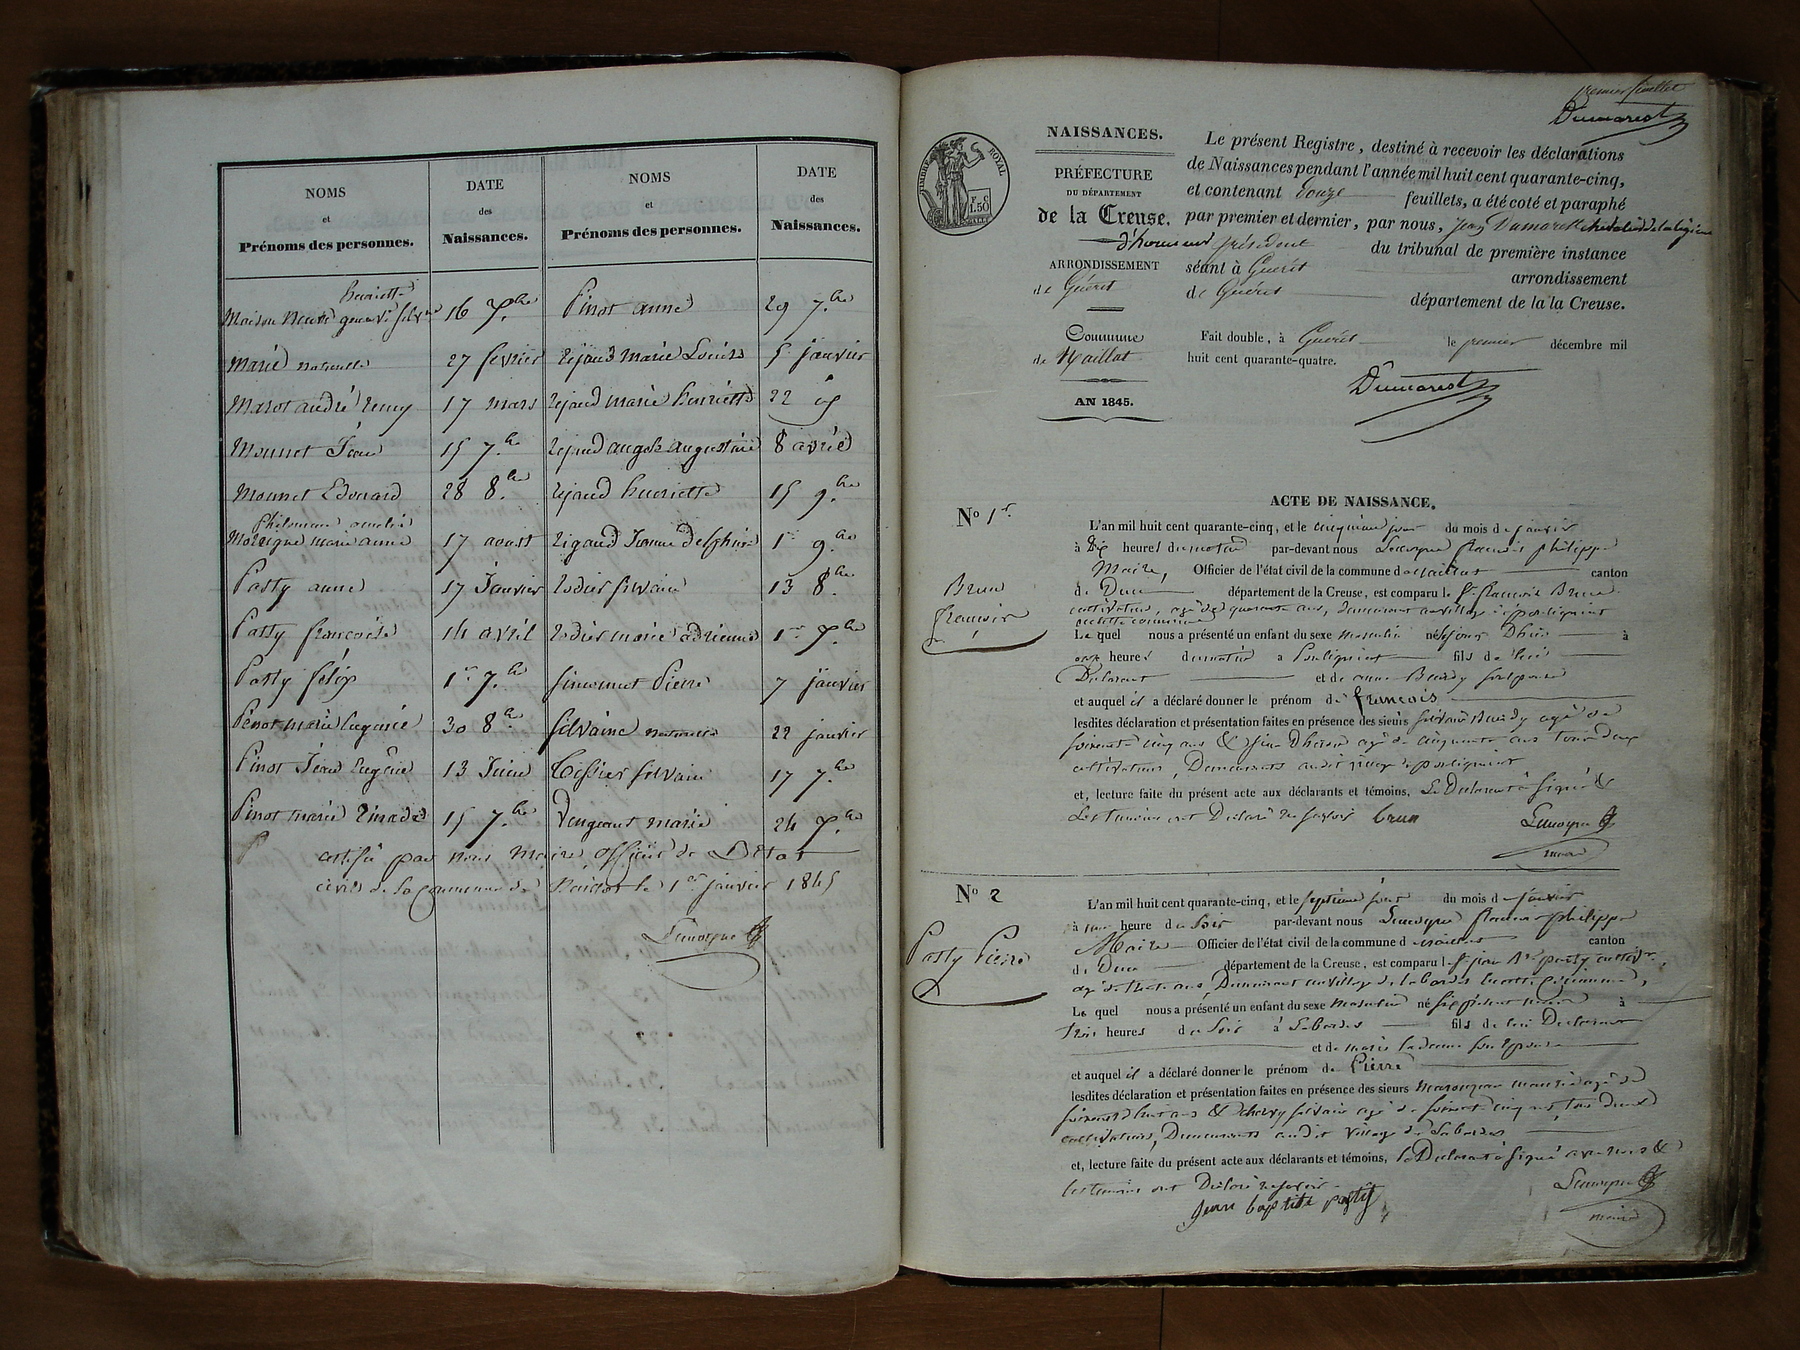 NOMS
et
Prénoms des personnes.
DATE
des
Naissances.
NOMS
et
Prénoms des personnes.
DATE
des
Naissances.
henriette
Maison neuve 16 7.bre
Pinot anne 29 7.bre
Marie naturelle 27 fevrier
Rejaud Marie Louise 5 janvier
Marot andré remy 17 mars
Rejaud marie henriette 22
Mounet Jean 15 7.bre
Rejaud augustine 8 avril
Mounet Edouard 28 8.bre
Rejaud henriette 15 9.bre
Philomene
marie anne 17 aoust
Rigaud Jeanne Delphine 1er 9.bre
Pasty anne 17 Janvier
Rodier silvain 13 8.bre
Pasty françoise 14 avril
Rodier marie adrienne 1er 7.bre
Pasty felix 1er 7.bre
Simonnet Pierre 7 janvier
Penot marie Eugenie 30 8.bre
Silvaine naturelle 22 janvier
Pinot Jean Eugène 13 Juin
Tissier silvain 17 7.bre
Pinot marie 15 7.bre
Vengeant marie 24 7.bre
certifié par nous Maire officier de L'Etat
civil de la commune de Naillat le 1er janvier 1845
premier feuillet
Dumarest
TIMBRE ROYAL
1.50
NAISSANCES.
PRÉFECTURE
DU DÉPARTEMENT
de la Creuse.
ARRONDISSEMENT
de Guéret
Commune
de Naillat
AN 1845.
Le présent Registre, destiné à recevoir les déclarations
de Naissances pendant l'année mil huit cent quarante-cinq,
et contenant Douze feuillets, a été coté et paraphé
par premier et dernier, par nous, Jean Dumarest chevalier de la légion
d'honneur président du tribunal de première instance
séant à Guéret arrondissement
de Guéret département de la la Creuse.
Fait double, à Guéret le premier décembre mil
huit cent quarante-quatre.
Dumarest
ACTE DE NAISSANCE.
No 1er
Brun
françois
L'an mil huit cent quarante-cinq, et le cinquième jour du mois de janvier
à Dix heures du matin par-devant nous françois philippe
Maire, Officier de l'état civil de la commune de Naillat canton
de Dun département de la Creuse, est comparu le Sr francois Brun
cultivateur, agé de quarante ans, demeurant au village de
cette commune
Lequel nous a présenté un enfant du sexe masculin né le jour D'hier à
onze heures du matin à fils de lui
Déclarant et de anne son épouse
et auquel il a déclaré donner le prénom de françois
lesdites déclaration et présentation faites en présence des sieurs silvain agé de
soixante cinq ans & agé de cinquante ans tous deux
cultivateurs, Demeurants audit village
et, lecture faite du présent acte aux déclarants et témoins, Le Déclarant à signé &
Les temoins ont Déclaré ne savoir brun
maire
No 2
Pasty Pierre
L'an mil huit cent quarante-cinq, et le septième jour du mois de janvier
à une heure du soir par-devant nous françois philippe
Maire Officier de l'état civil de la commune de Naillat canton
de Dun département de la Creuse, est comparu le Sr jean Bte pasty cultivr.
agé de trente ans, Demeurant au village de labordes
Lequel nous a présenté un enfant du sexe masculin né à
trois heures du soir à Labordes fils de lui Déclarant
et de marie son épouse
et auquel il a déclaré donner le prénom de Pierre
lesdites déclaration et présentation faites en présence des sieurs
ans & silvain agé de soixante cinq ans, tous deux
cultivateurs, Demeurants audit village de Labordes
et, lecture faite du présent acte aux déclarants et témoins, le Déclarant à signé avec nous &
les temoins ont Déclaré ne savoir
jean baptiste pasty
maire